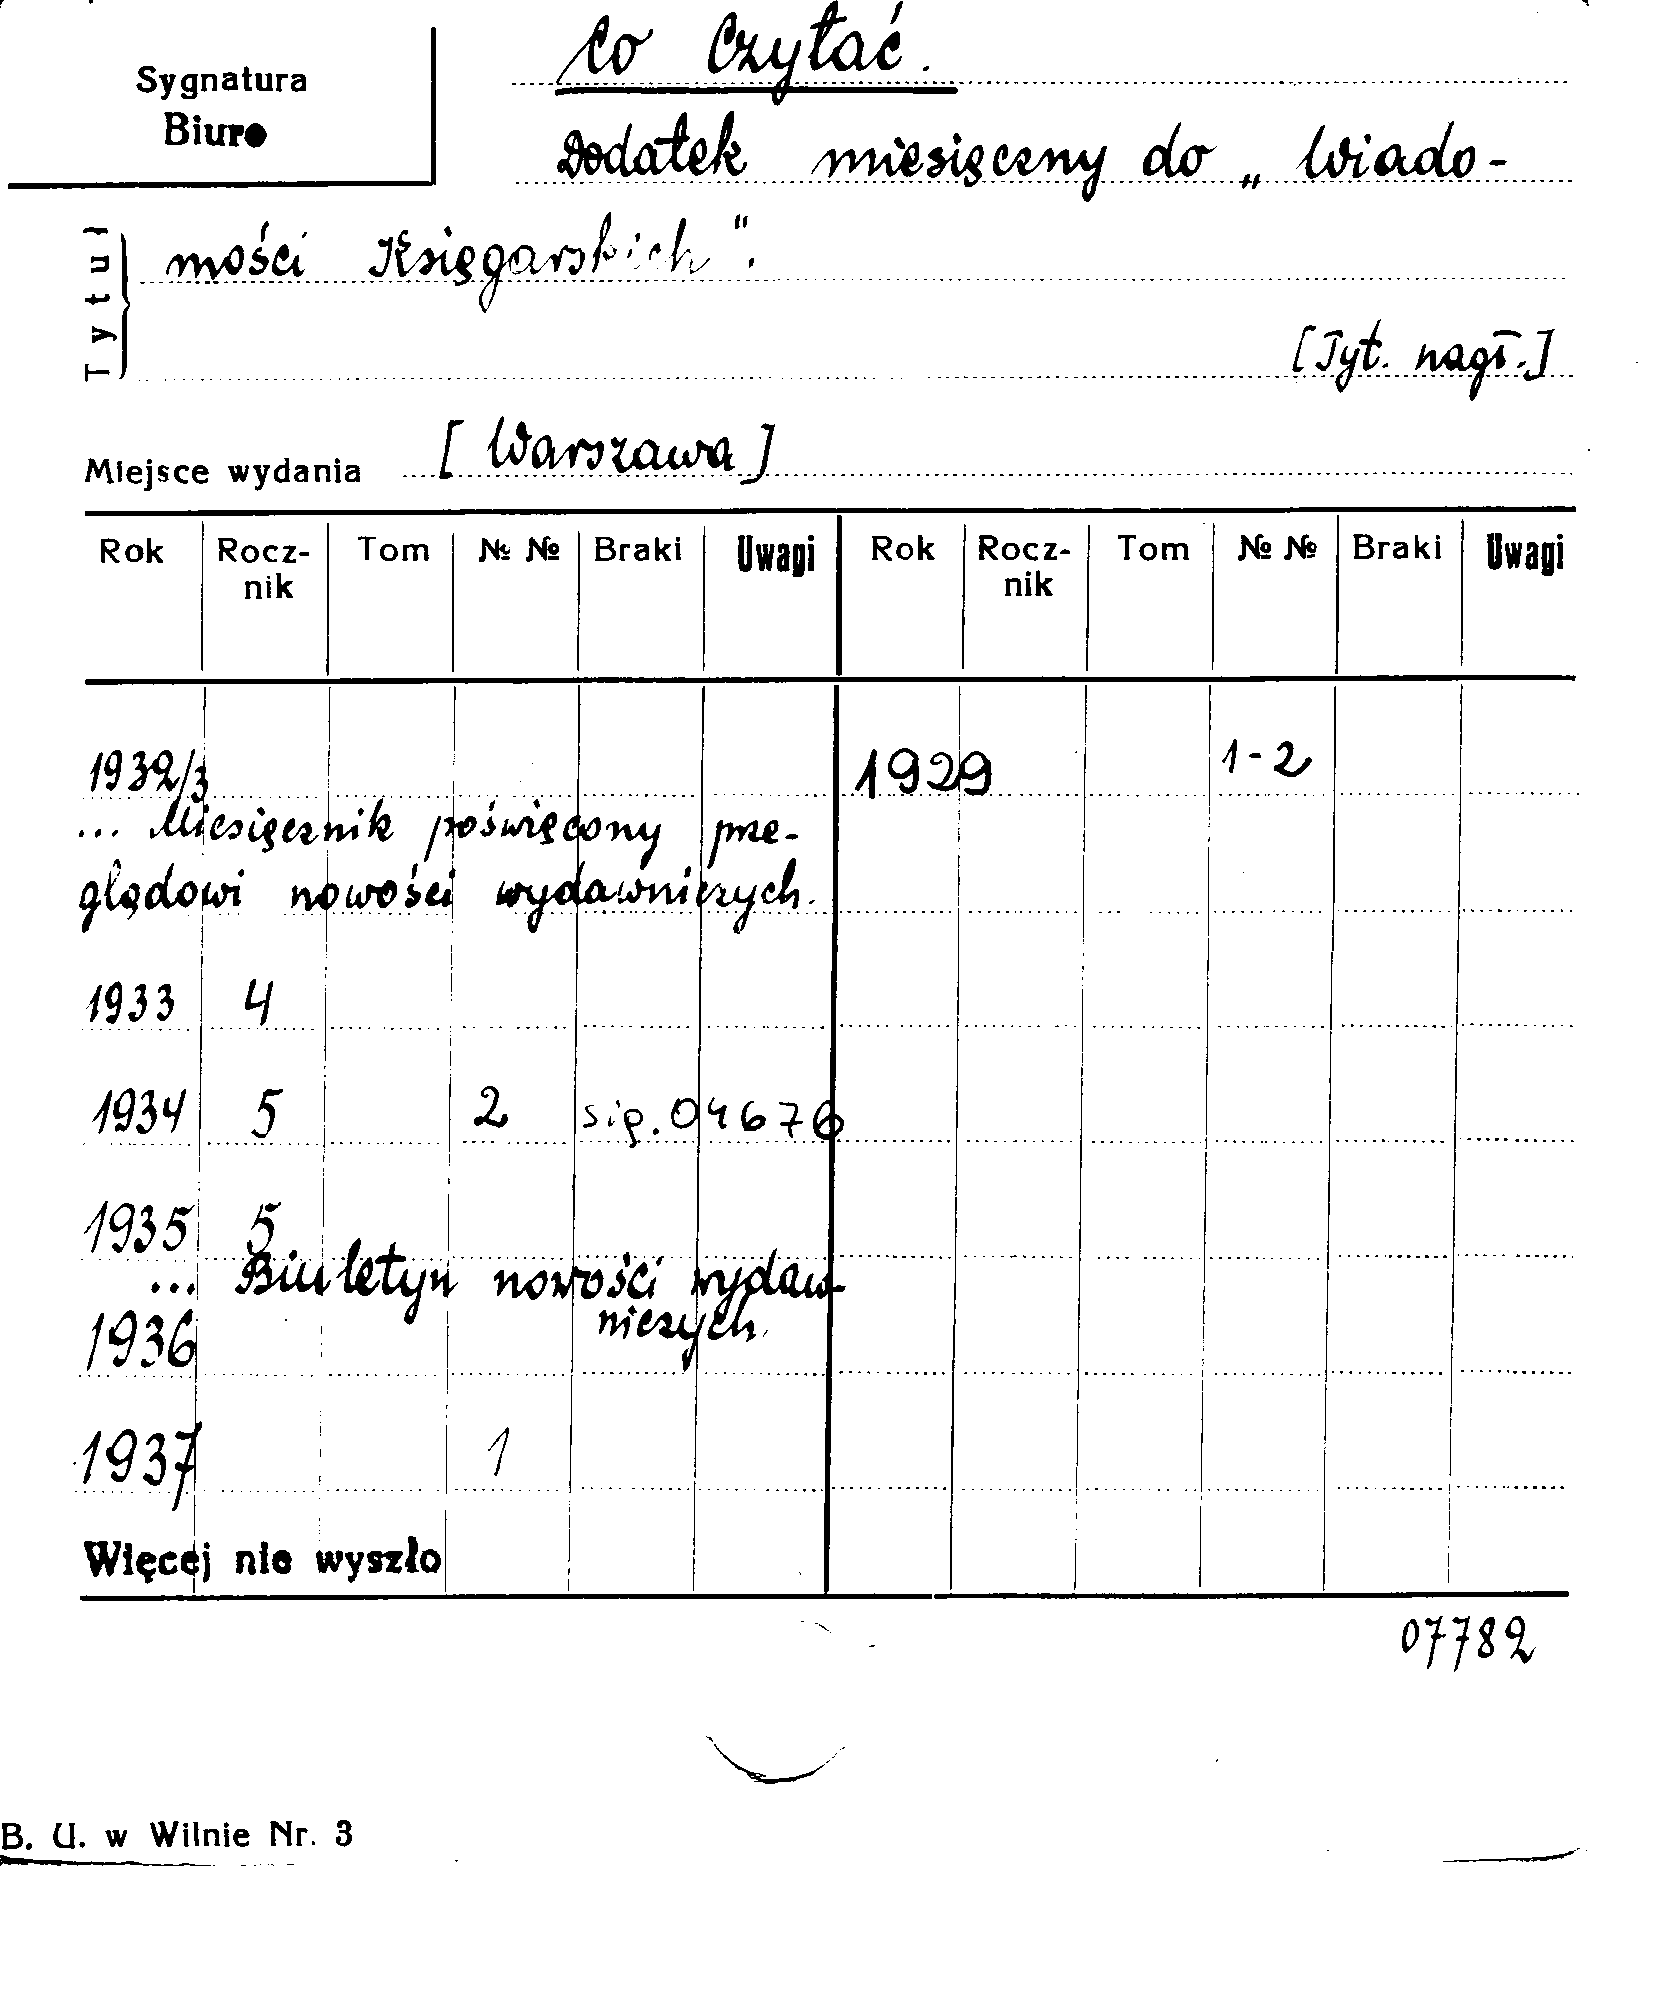 Co Czytać.
Sygnatura
Biuro
Dodatek miesięczny do „Wiado-
mości Księgarskich".
Tytuł
[Tyt. nagł.]
Miejsce wydania [Warszawa]
Rok Rocz- Tom № № Braki Uwagi Rok Rocz- Tom № № Braki Uwagi
nik nik
1932/3 1929 1-2
... Miesięcznik poświęcony prze-
glądowi nowości wydawniczych.
1933 4
1934 5 2 sig. 04676
1935 5
... Biuletyn nowości wydaw-
niczych.
1936
1937 1
Więcej nie wyszło
07782
B. U. w Wilnie Nr. 3